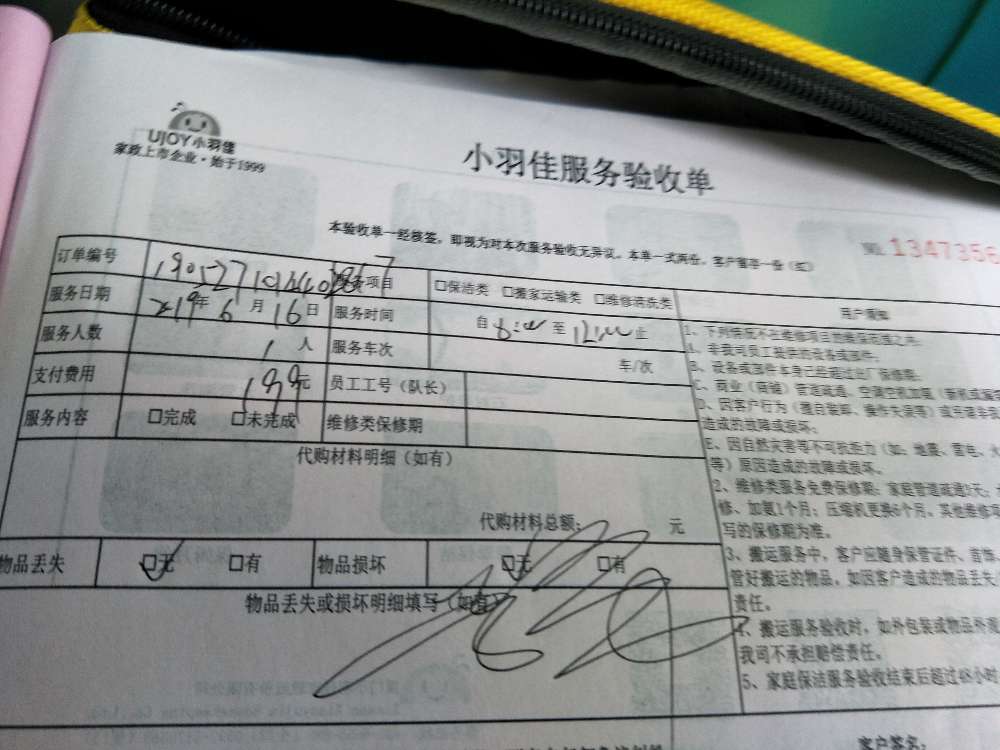 UJOY小羽佳
家政上市企业·始于1999
小羽佳服务验收单
本验收单一经核签，即视为对本次服务验收无异议。本单一式两份，客户留存一份（红）
NO. 1347356
订单编号 服务项目 □保洁类 □搬家运输类 □维修清洗类 用户须知
服务日期 2019年6月16日 服务时间 自8:00至12:00止
服务人数 1人 服务车次 车/次
支付费用 199元 员工工号（队长）
服务内容 □完成 □未完成 维修类保修期
代购材料明细（如有）
代购材料总额： 元
物品丢失 □无 □有 物品损坏 □无 □有
物品丢失或损坏明细填写（如有）
1、下列情况不在维修项目的维保范围之内：
A、非我司员工提供的设备或部件。
B、设备或部件本身已经超过出厂保修期。
C、商业（商铺）管道疏通、空调空机加氟
D、因客户行为（擅自装卸、操作失误等）或
造成的故障或损坏。
E、因自然灾害等不可抗力（如：地震、雷电、
等）原因造成的故障或损坏。
2、维修类服务免费保修期：家庭管道疏通
修、加氟1个月；压缩机更换6个月、其他维修
写的保修期为准。
3、搬运服务中，客户应随身保管证件、首饰
管好搬运的物品，如因客户造成的物品丢失
责任。
4、搬运服务验收时，如外包装或物品外观
我司不承担赔偿责任。
5、家庭保洁服务验收结束后超过48小时
客户签名：